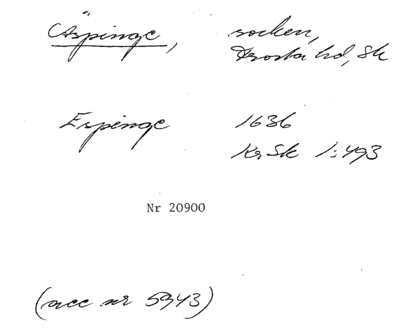 Äspinge, socken,
Frosta hd, Sk
Espinge 1636
KrSk 1:493
Nr 20900
(acc nr 5943)